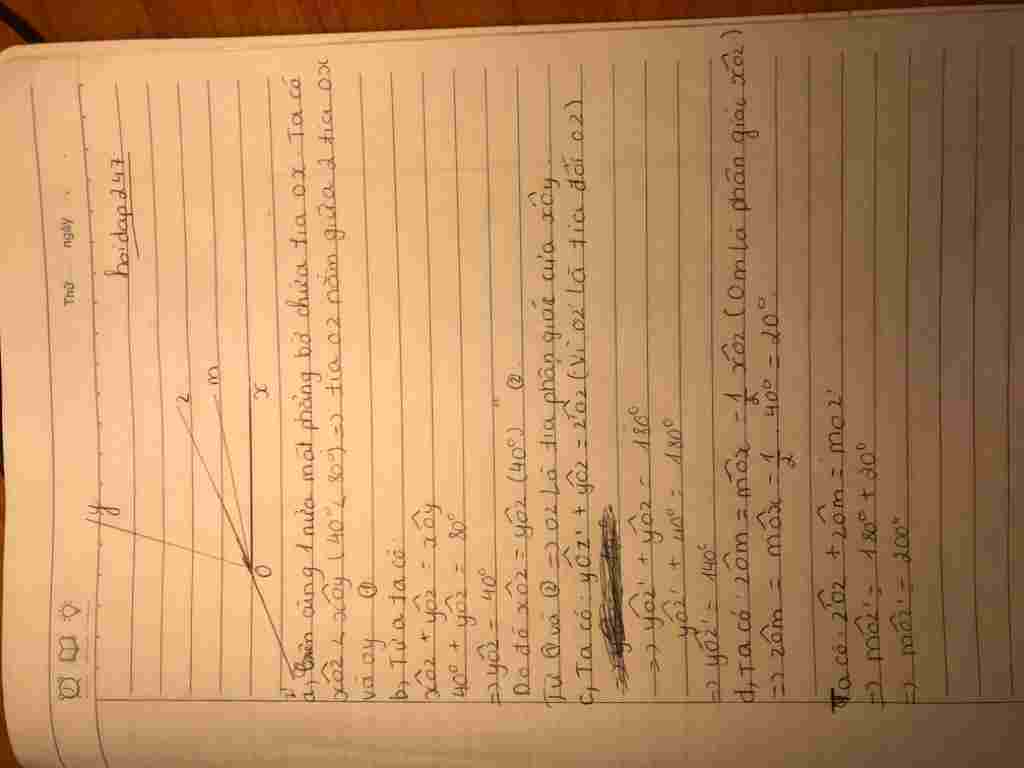 Thứ ngày
hoidap247
y
z
m
x
O
z'
a, Trên cùng 1 nửa mặt phẳng bờ chứa tia Ox. Ta có
xôz < xôy (40° < 80°) => tia Oz nằm giữa 2 tia Ox
và Oy ①
b, Từ a ta có:
xôz + yôz = xôy
40° + yôz = 80°
=> yôz = 40°
Do đó xôz = yôz (40°) ②
Từ ① và ② => Oz là tia phân giác của xôy.
c, Ta có: yôz' + yôz = z'ôz (Vì Oz' là tia đối Oz)
=> yôz' + yôz = 180°
yôz' + 40° = 180°
=> yôz' = 140°
d, Ta có: zôm = môx = 1/2 xôz (Om là phân giác xôz)
=> zôm = môx = 1/2 . 40° = 20°.
Ta có: z'ôz + zôm = môz'
=> môz' = 180° + 20°
=> môz' = 200°